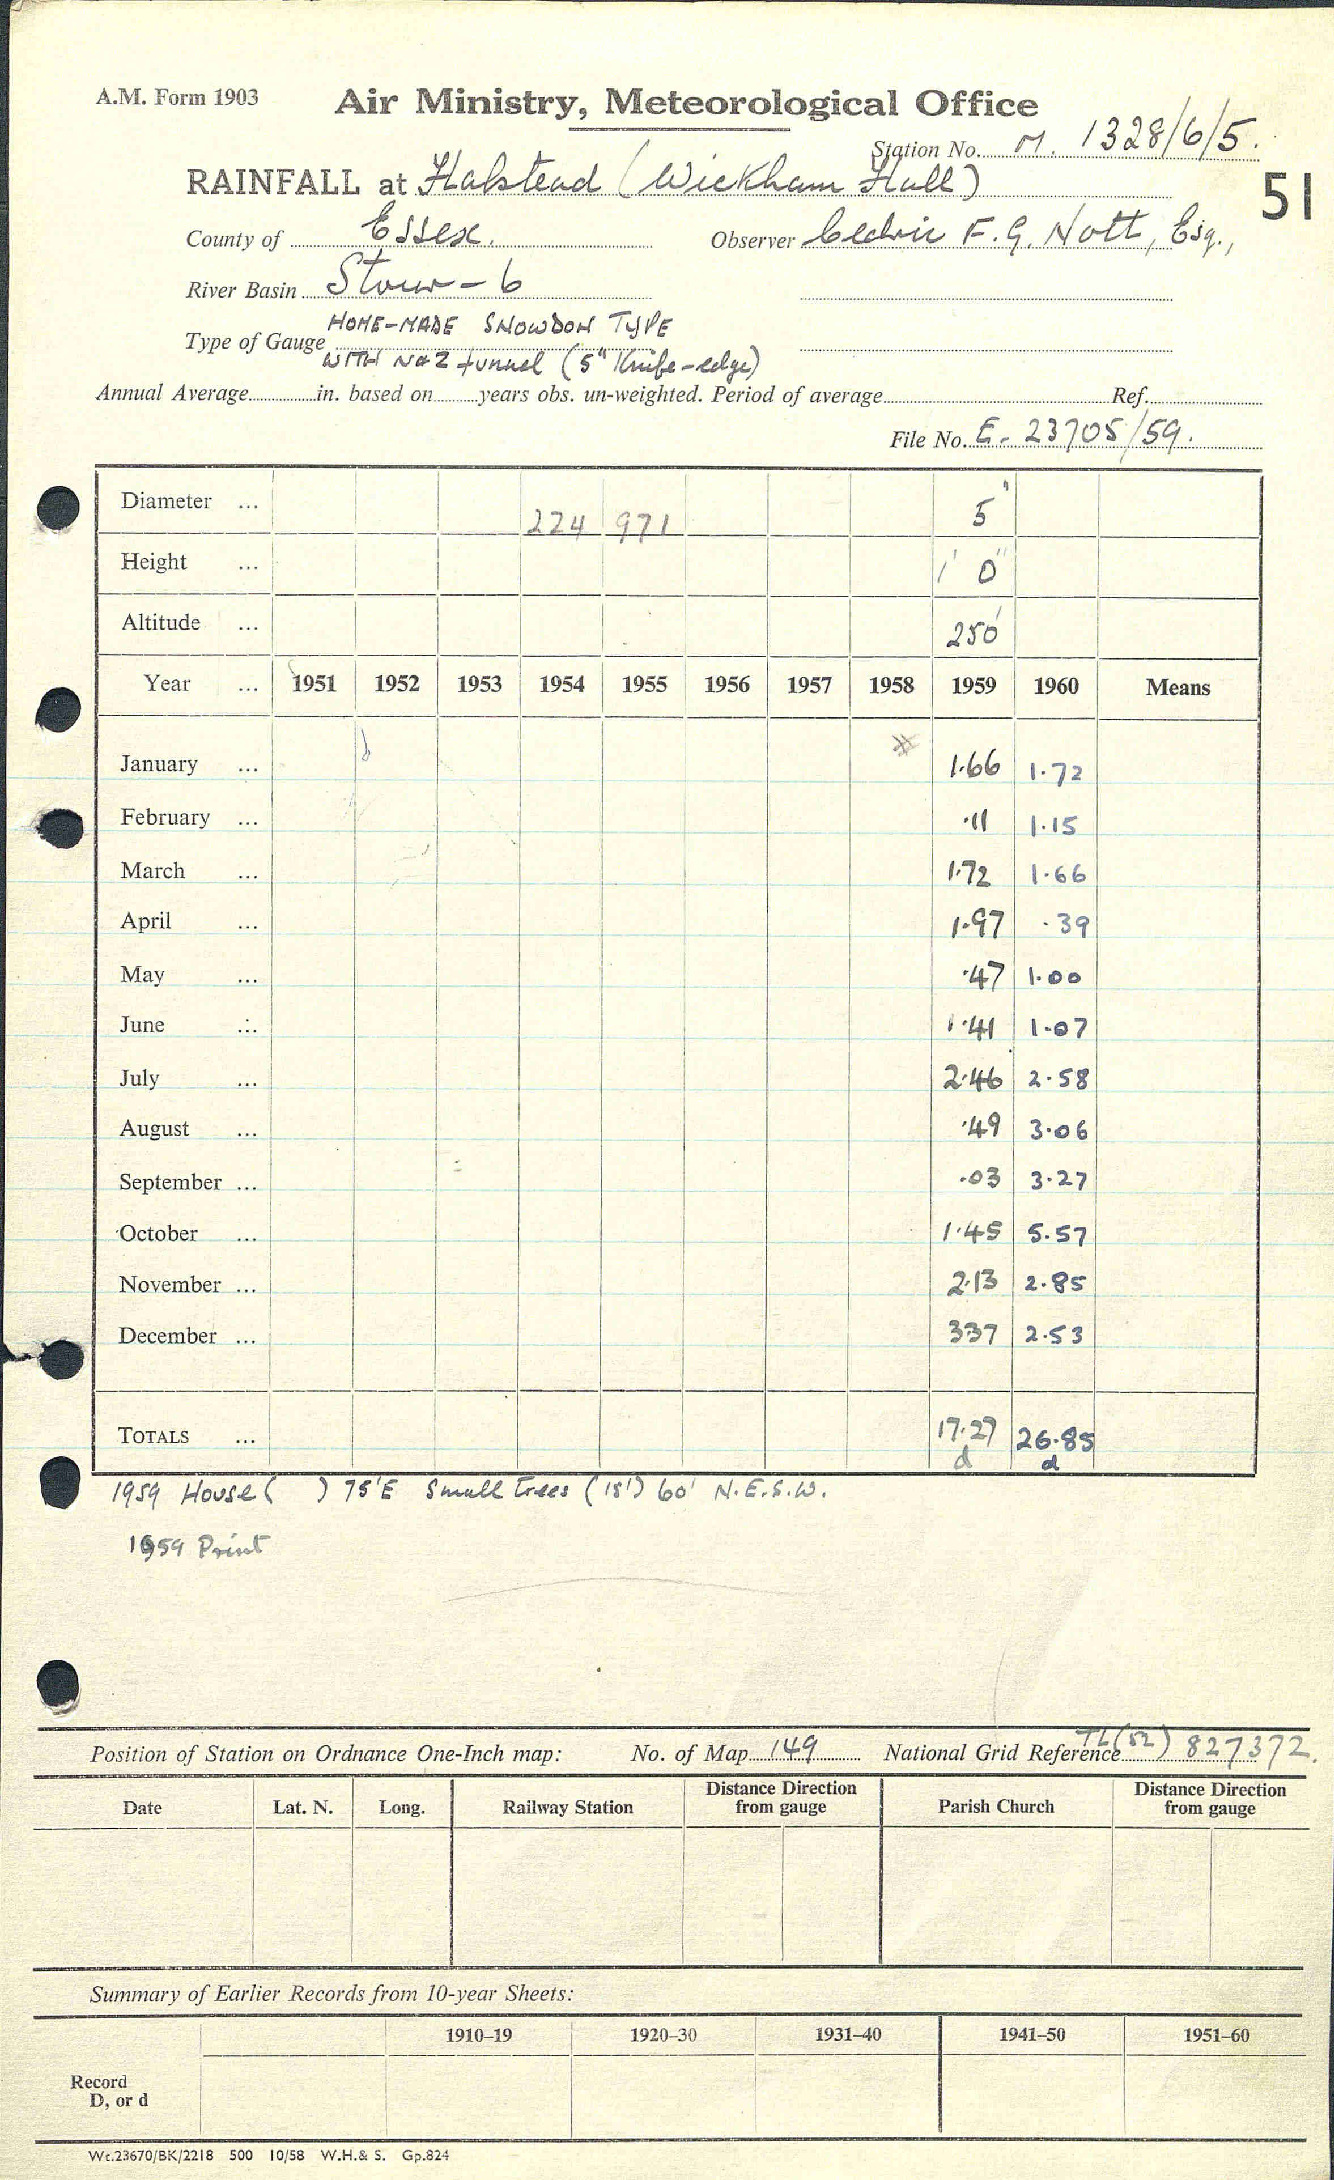 A.M. Form 1903
Air Ministry, Meteorological Office
Station No. M. 1328/6/5.
RAINFALL at Halstead (Wickham Hall)
51
County of Essex. Observer Cedric F. G. Nott, Esq.,
River Basin Stour - 6
Type of Gauge HOME-MADE SNOWDON TYPE
WITH No 2 funnel (5" Knife-edge)
Annual Average in. based on years obs. un-weighted. Period of average Ref.
File No. E. 23705/59.
Diameter ... 224 971 5"
Height ... 1' 0"
Altitude ... 250'
Year ... 1951 1952 1953 1954 1955 1956 1957 1958 1959 1960 Means
January ... 1.66 1.72
February ... .11 1.15
March ... 1.72 1.66
April ... 1.97 .39
May ... .47 1.00
June ... 1.41 1.07
July ... 2.46 2.58
August ... .49 3.06
September ... .03 3.27
October ... 1.45 5.57
November ... 2.13 2.85
December ... 3.37 2.53
TOTALS ... 17.27 26.85
d d
1959 House ( ) 75'E Small trees (15') 60' N.E.S.W.
1959 Print
Position of Station on Ordnance One-Inch map: No. of Map 149 National Grid Reference TL(52) 827372.
Date Lat. N. Long. Railway Station Distance Direction from gauge Parish Church Distance Direction from gauge
Summary of Earlier Records from 10-year Sheets:
1910–19 1920–30 1931–40 1941–50 1951–60
Record
D, or d
Wt.23670/BK/2218 500 10/58 W.H.& S. Gp.824